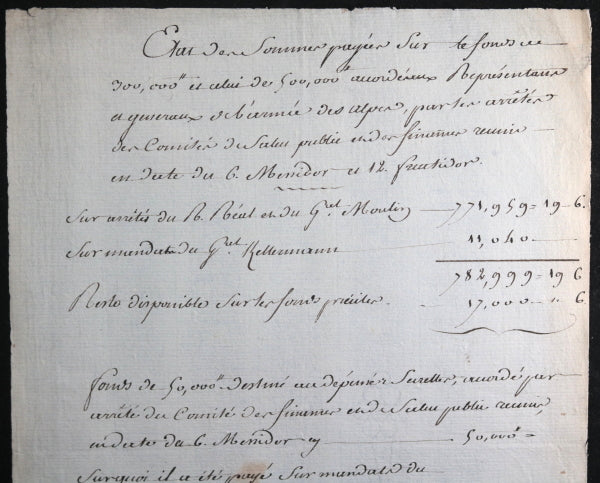 Etat des Sommes payées Sur le fonds de
300,000ᵗᵗ et celui de 500,000ᵗᵗ accordé aux Représentans
et generaux de l'armée des alpes, par les arrêtés
des Comités de Salut public et des finances reunis
en date du 6. Messidor et 12. fructidor.
Sur arrêtés du R. Réal et du Gᵃˡ Moulin 771,959 = 19 = 6.
Sur mandats du Gᵃˡ Kellermann 11,040
782,999 = 19 6
Reste disponible Sur les fonds précités. 17,000 = 6
fonds de 50,000ᵗᵗ destiné aux dépenses Secrettes, accordé par
arrêté du Comité des finances et de Salut public reunis,
en date du 6. Messidor 50,000ᵗᵗ =
Sur quoi il a été payé Sur mandats du